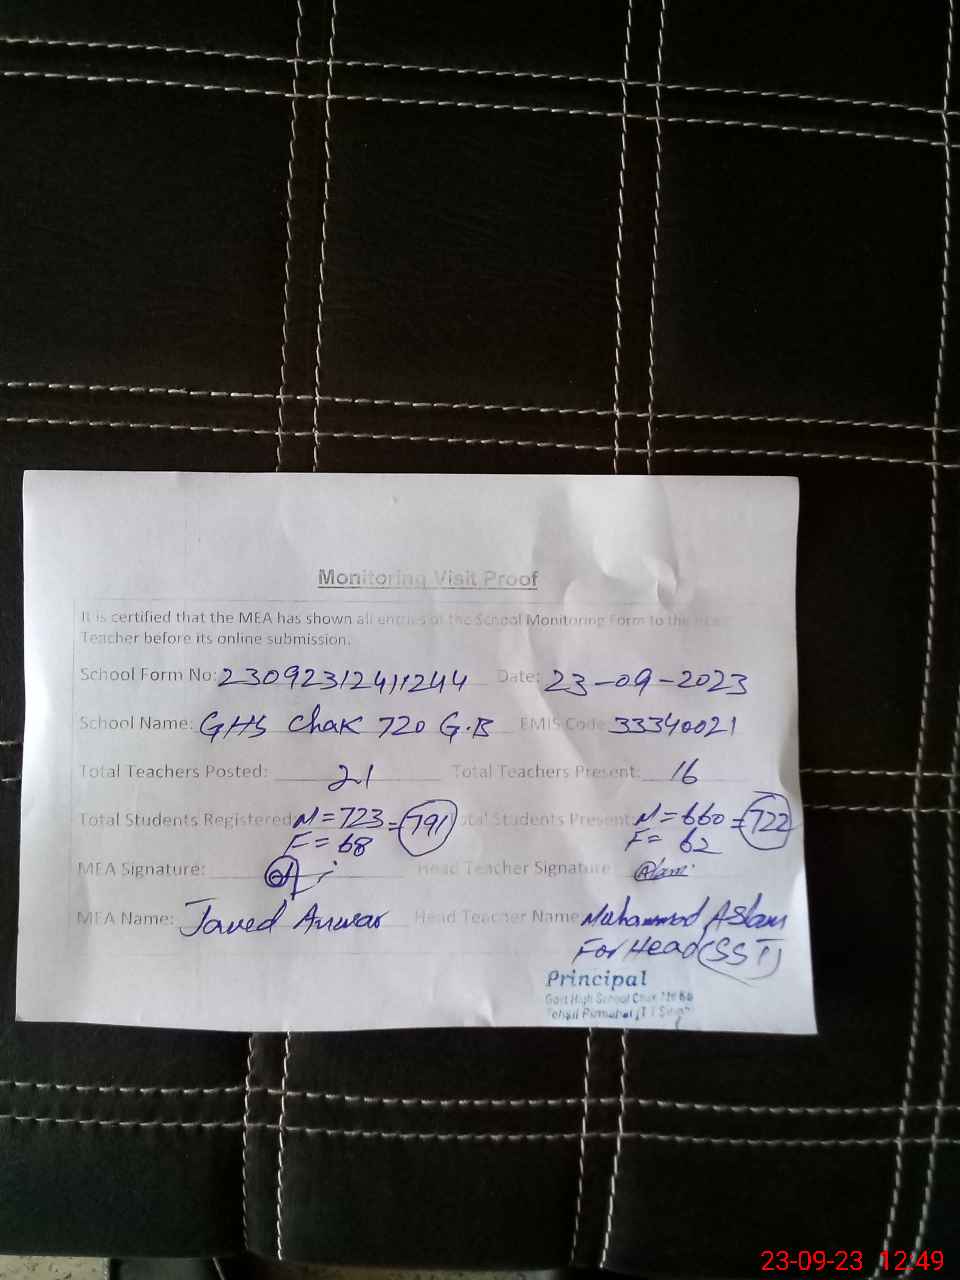 Monitoring Visit Proof
It is certified that the MEA has shown all entries of the School Monitoring Form to the Head
Teacher before its online submission.
School Form No: 23092312411244 Date: 23-09-2023
School Name: GHS Chak 720 G.B EMIS Code 33340021
Total Teachers Posted: 21 Total Teachers Present: 16
Total Students Registered M = 723 = 791 Total Students Present: M = 660 = 722
F = 68 F = 62
MEA Signature: Head Teacher Signature Aslam
MEA Name: Javed Anwar Head Teacher Name: Muhammad Aslam
For Head (SST)
Principal
Govt High School Chak
Tehsil
23-09-23 12:49